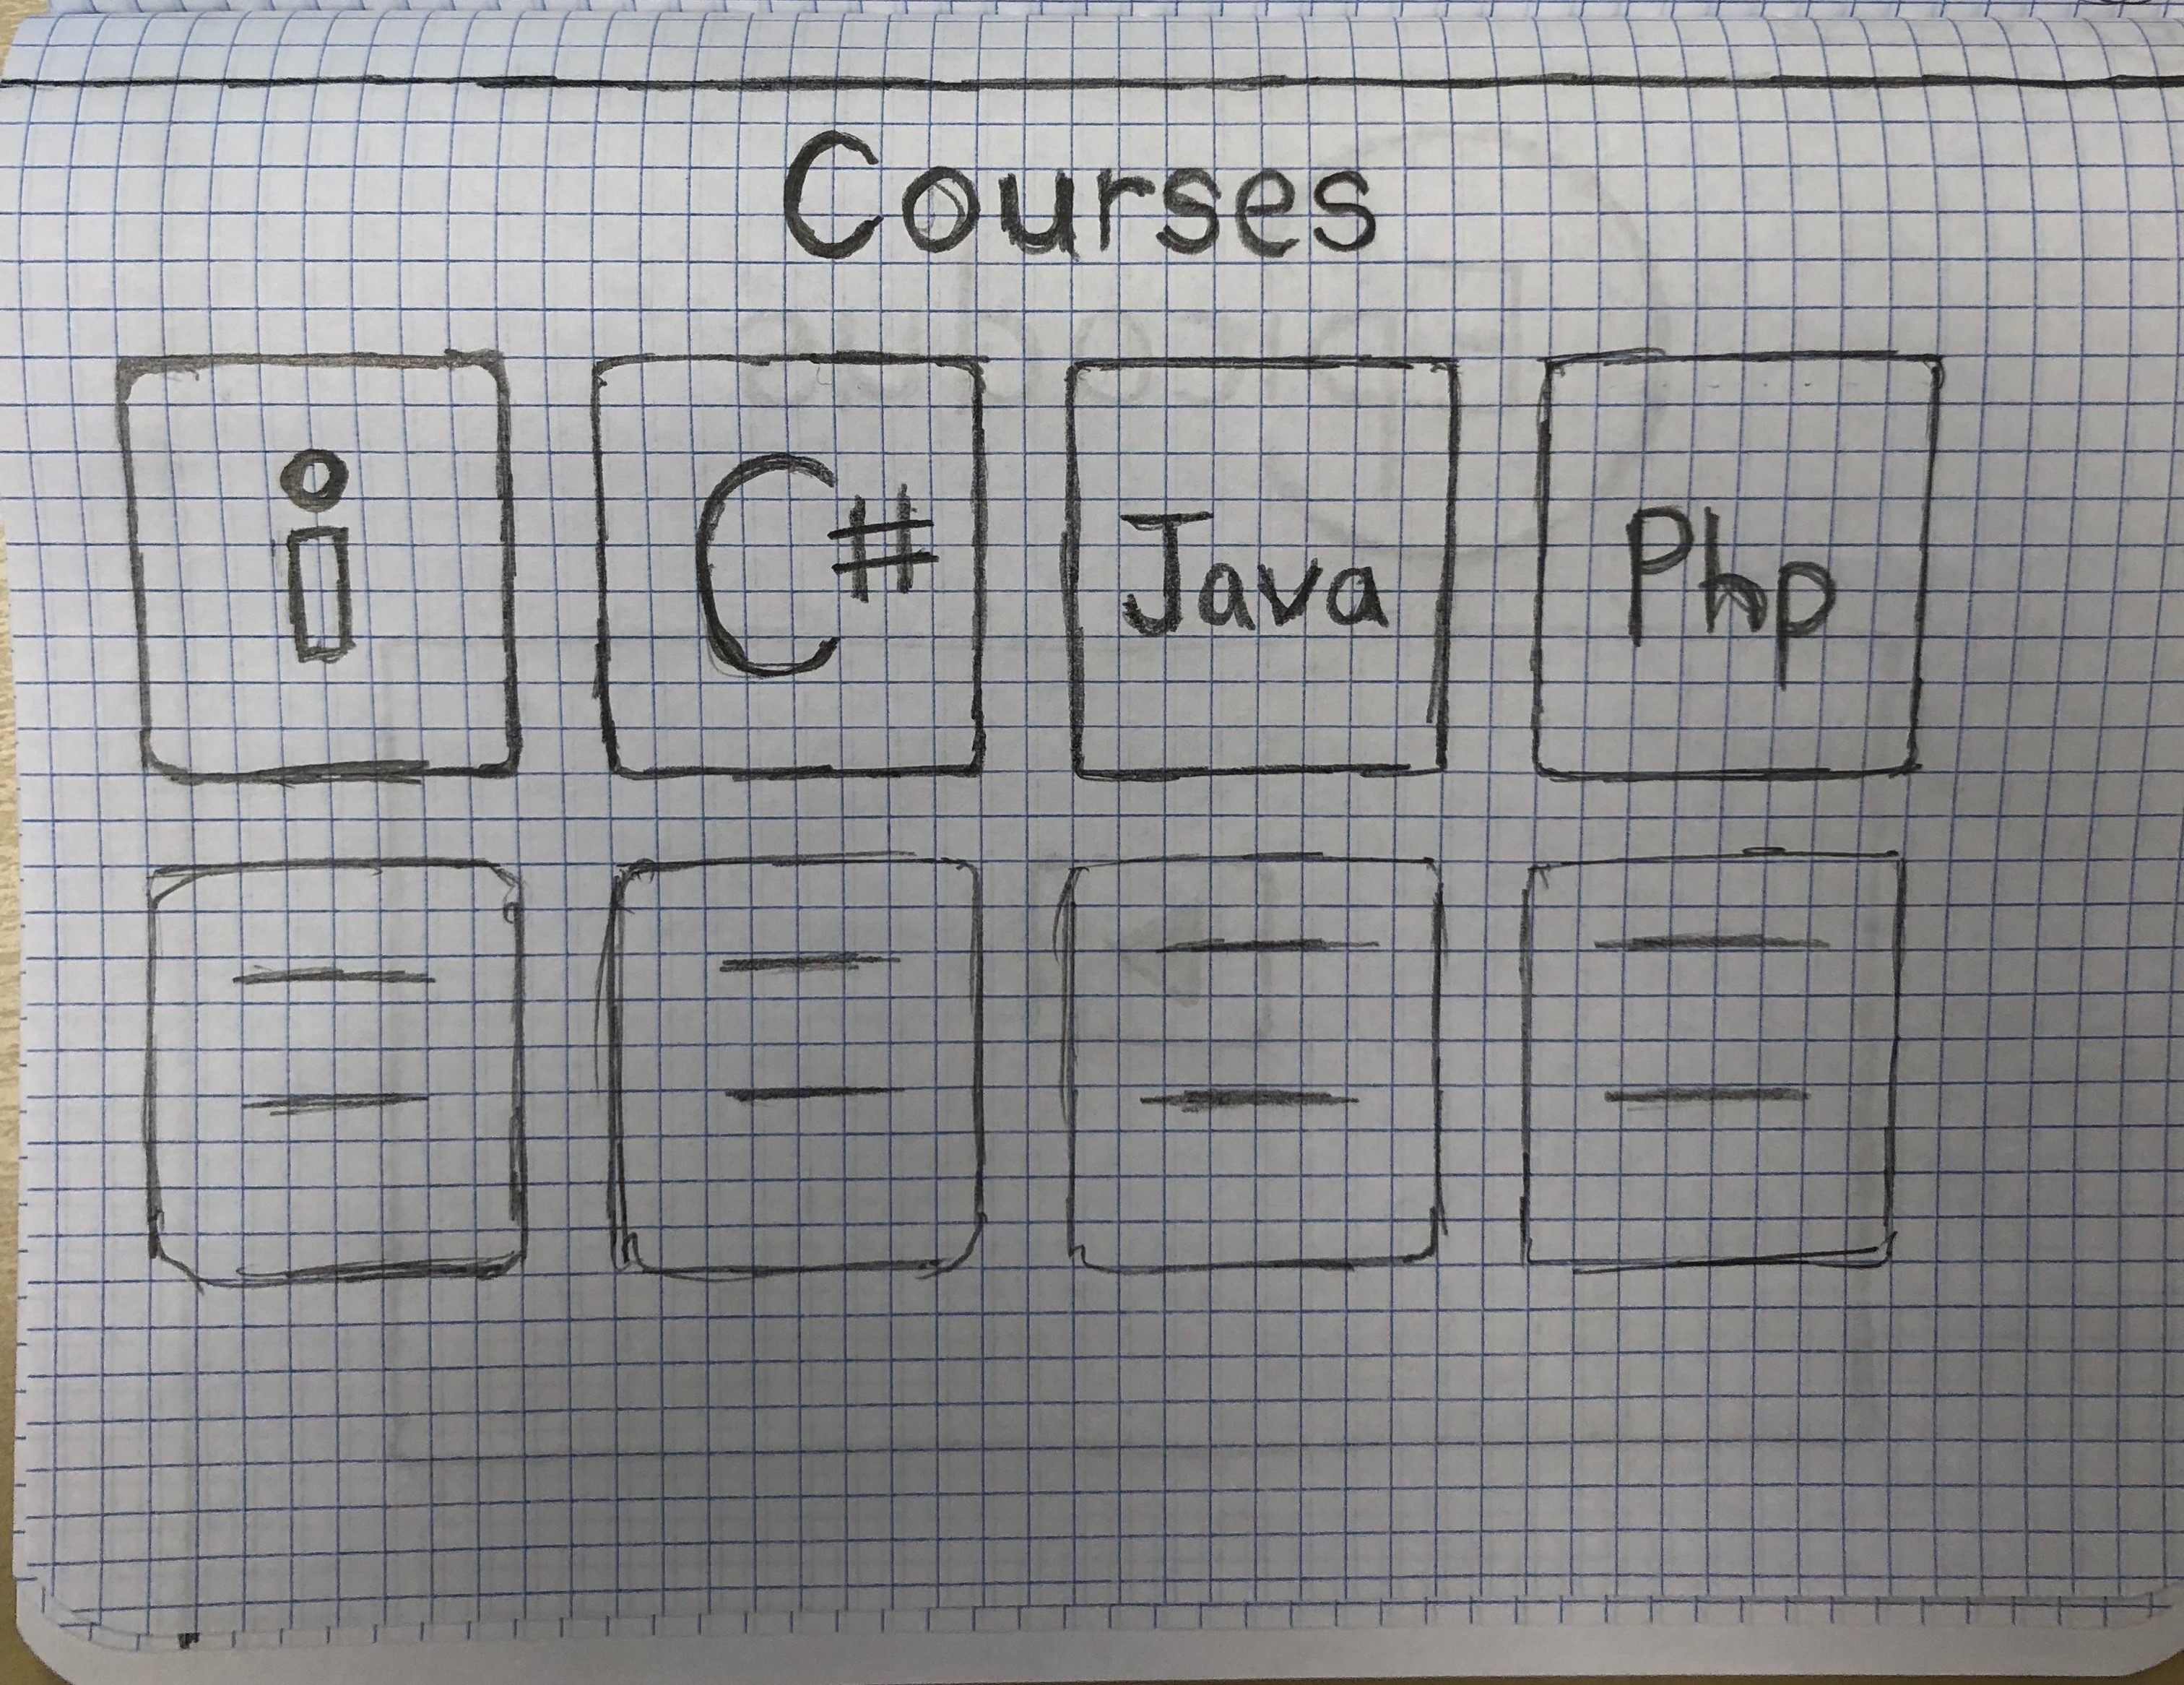 Courses
i
C#
Java
Php